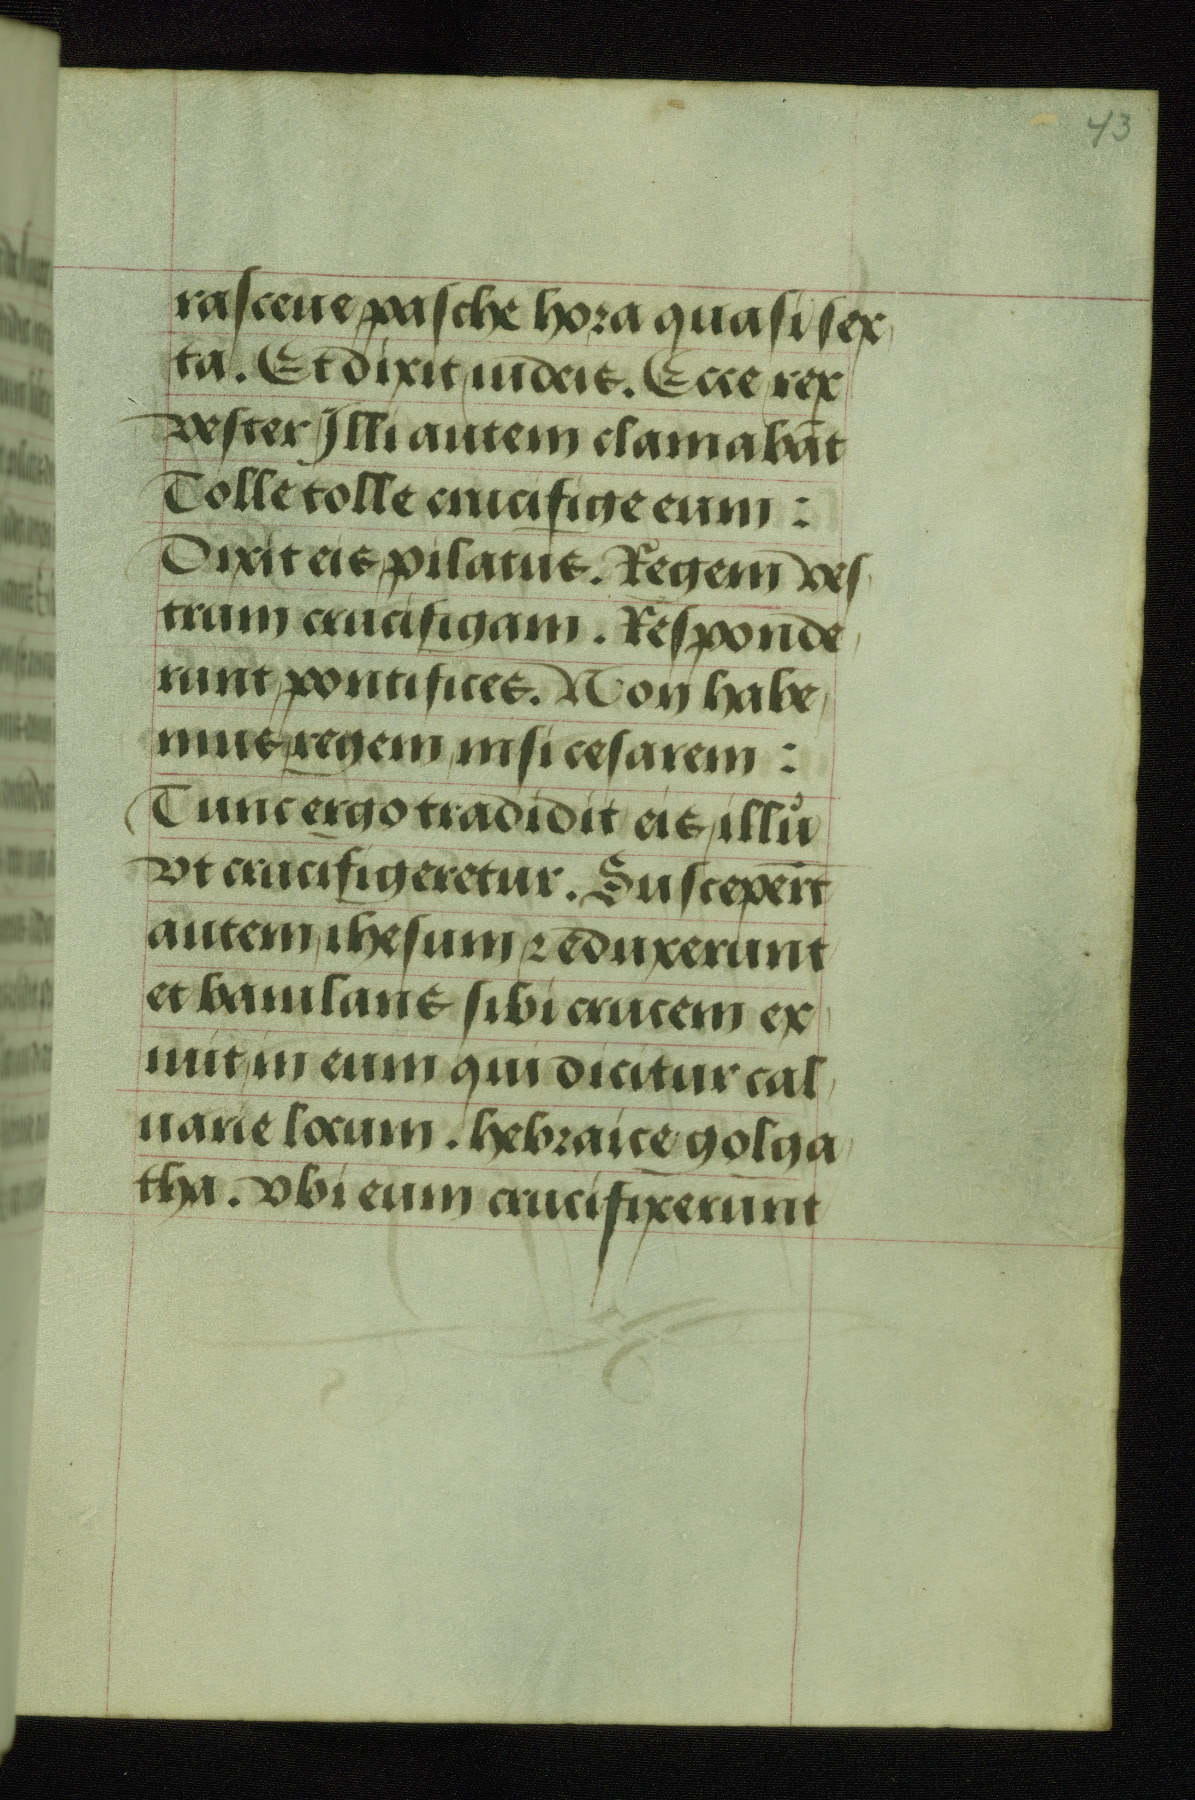 43
rasceue pasche hora quasi sex
ta. Et dixit iudeis. Ecce rex
vester Illi autem clamabāt
Tolle tolle crucifige eum :
Dixit eis pilatus. Regem ves
trum crucifigam. Responde
runt pontifices. Non habe
mus regem nisi cesarem :
Tunc ergo tradidit eis illū
vt crucifigeretur. Susceper̄t
autem ihesum ⁊ eduxerunt
et baiulans sibi crucem ex
iuit in eum qui dicitur cal
uarie locum. hebraice golga
tha. vbi eum crucifixerunt